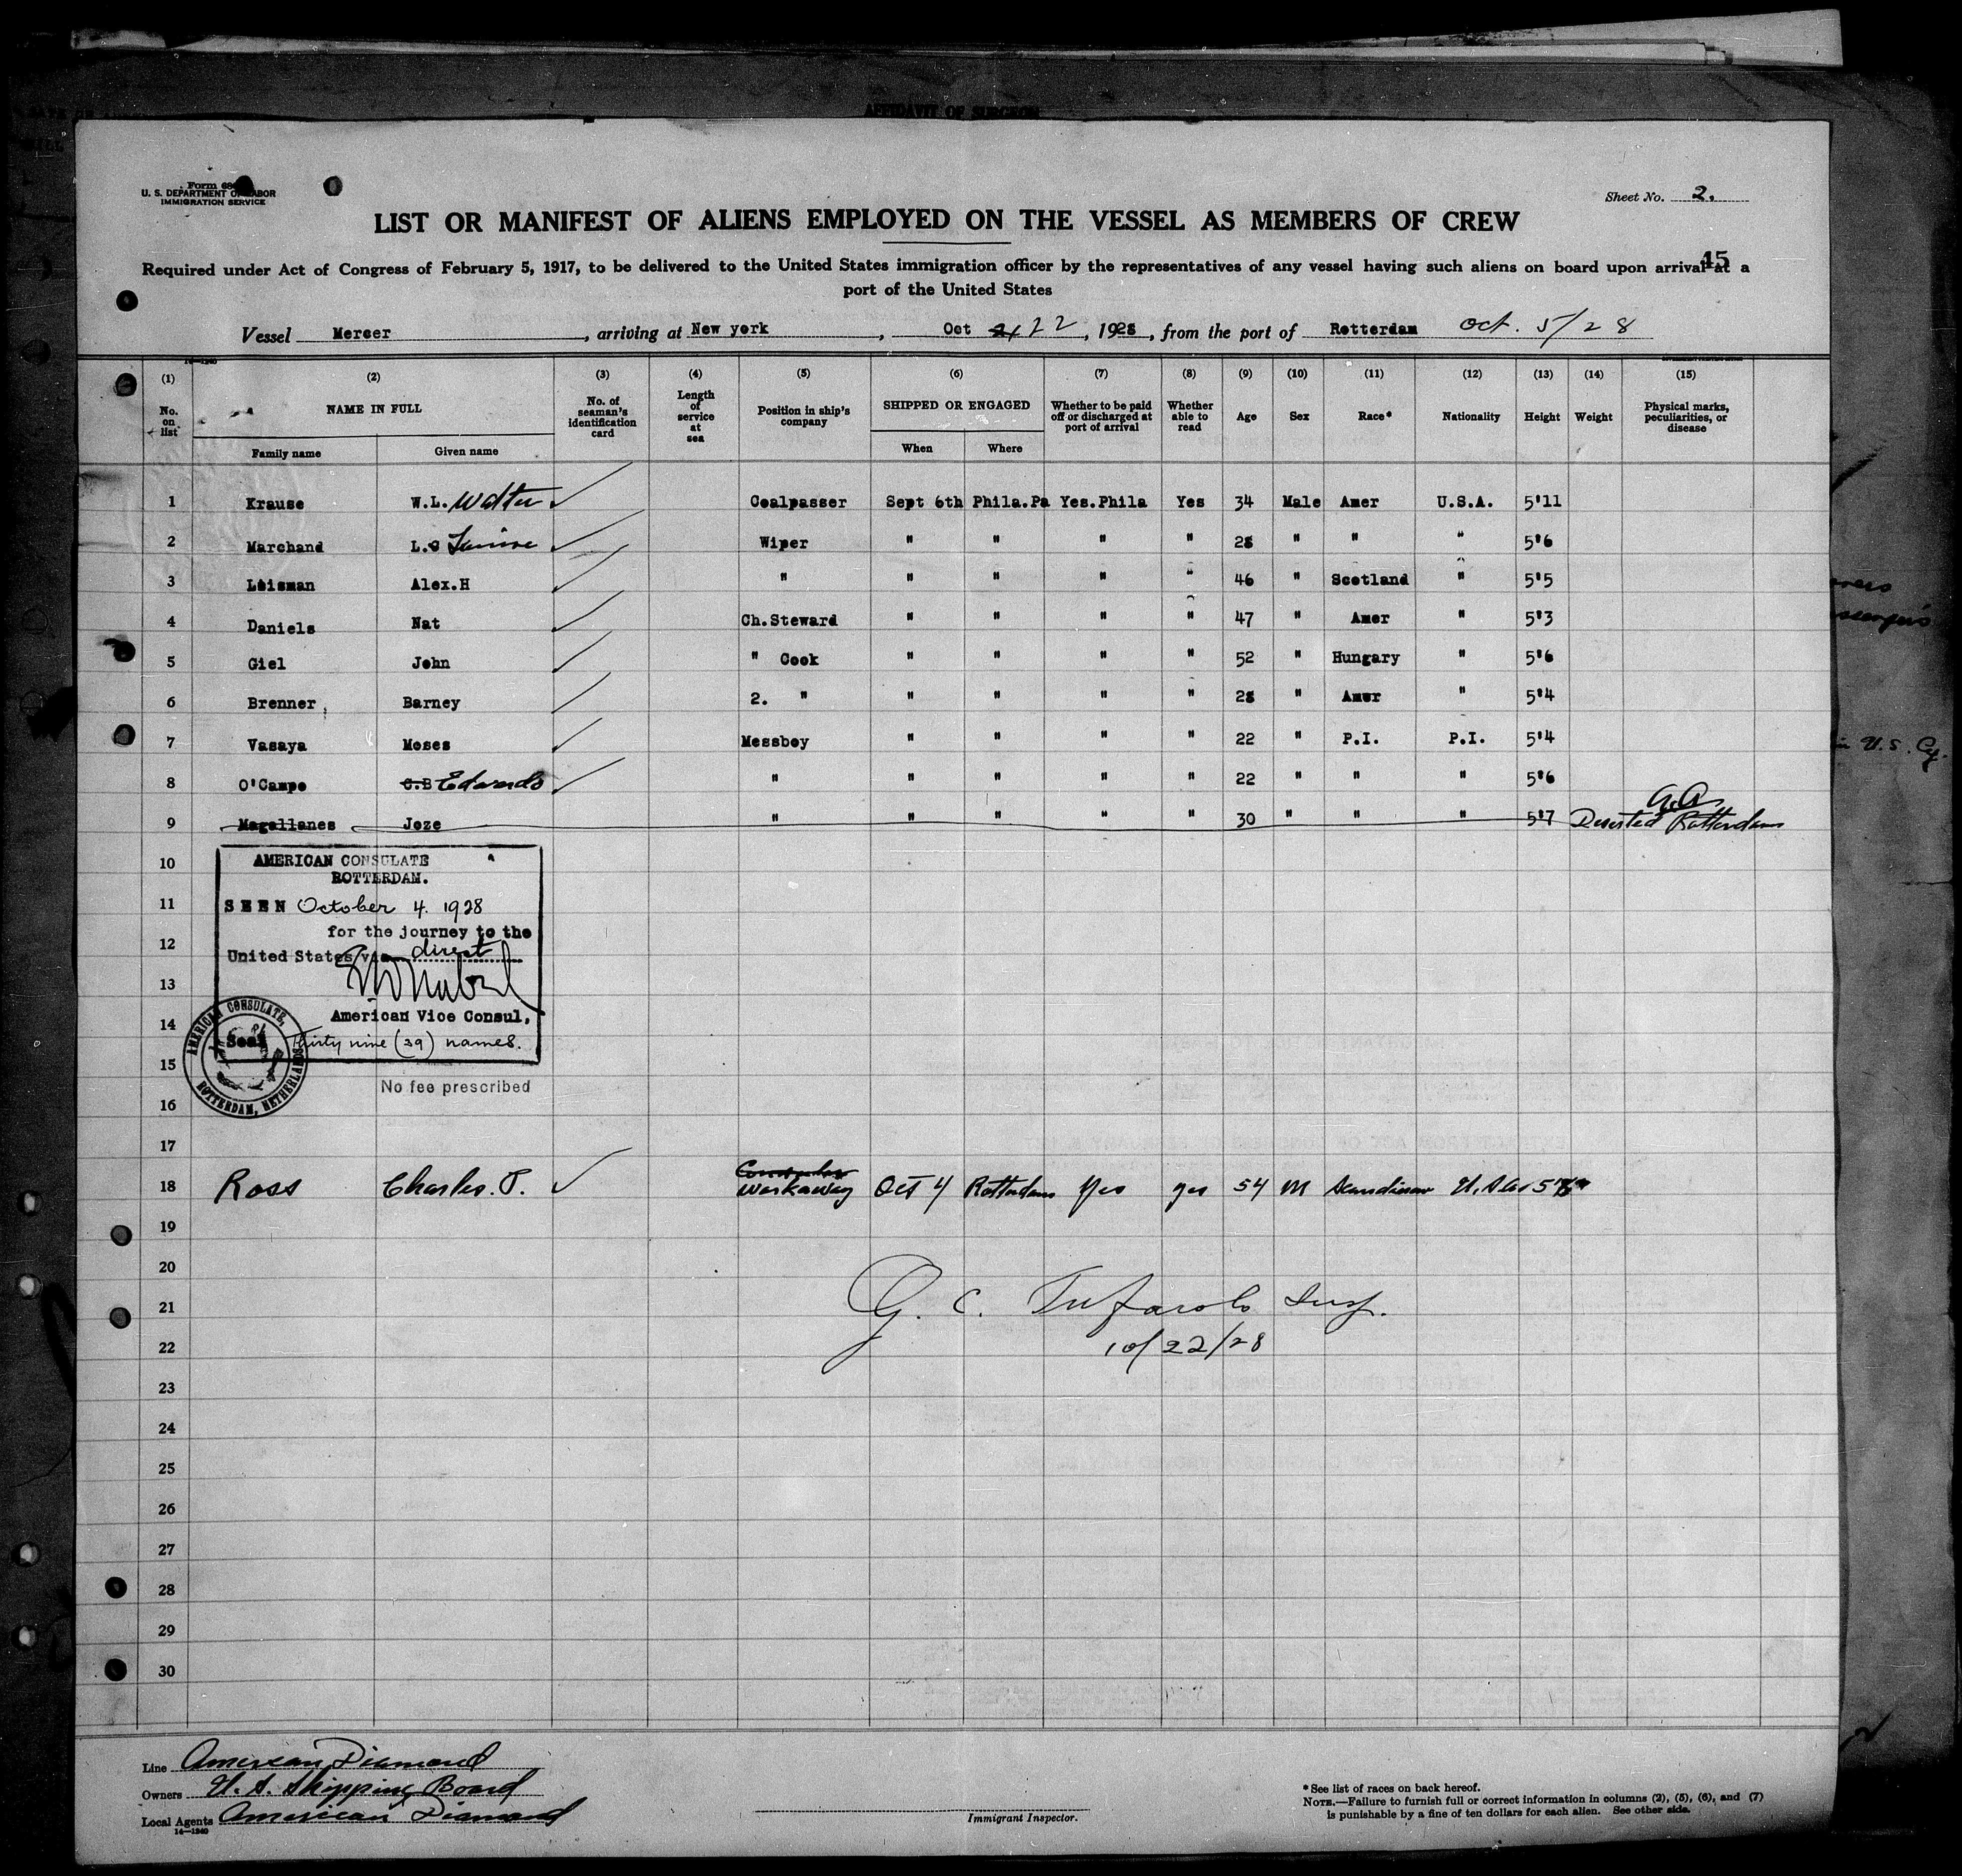 AFFIDAVIT OF SURGEON
U. S. DEPARTMENT OF LABOR
IMMIGRATION SERVICE
Sheet No. 2.
LIST OR MANIFEST OF ALIENS EMPLOYED ON THE VESSEL AS MEMBERS OF CREW
45
Required under Act of Congress of February 5, 1917, to be delivered to the United States immigration officer by the representatives of any vessel having such aliens on board upon arrival at a
port of the United States
Vessel Mercer, arriving at New york, Oct 22, 1928, from the port of Rotterdam Oct. 5/28
(1) (2) (3) (4) (5) (6) (7) (8) (9) (10) (11) (12) (13) (14) (15)
No. on list NAME IN FULL No. of seaman's identification card Length of service at sea Position in ship's company SHIPPED OR ENGAGED Whether to be paid off or discharged at port of arrival Whether able to read Age Sex Race* Nationality Height Weight Physical marks, peculiarities, or disease
Family name Given name When Where
1 Krause W.L. Walter Coalpasser Sept 6th Phila.Pa Yes.Phila Yes 34 Male Amer U.S.A. 5'11
2 Marchand L. Wiper " " " " 28 " " " 5'6
3 Leisman Alex.H " " " " " 46 " Scotland " 5'5
4 Daniels Nat Ch.Steward " " " " 47 " Amer " 5'3
5 Giel John " Cook " " " " 52 " Hungary " 5'6
6 Brenner Barney 2. " " " " " 28 " Amer " 5'4
7 Vasaya Moses Messboy " " " " 22 " P.I. P.I. 5'4
8 O'Campo C.B Edwardo " " " " " 22 " " " 5'6
9 Magellanes Joze " " " " " 30 " " " 5'7 Deserted Rotterdam
10
AMERICAN CONSULATE
ROTTERDAM.
11 SEEN October 4. 1928
for the journey to the
12 United States via direct
13
14 American Vice Consul,
Seal Thirty nine (39) names.
AMERICAN CONSULATE, ROTTERDAM, NETHERLANDS
15
No fee prescribed
16
17
18 Ross Charles. T. Workaway Oct 4 Rotterdam Yes yes 54 M Scandinav U.S.A.
19
20
21 G. C. Tufarolo Insp.
22 10/22/28
23
24
25
26
27
28
29
30
Line American Diamond
Owners U. S. Shipping Board
Local Agents American Diamond
14—1240
Immigrant Inspector.
*See list of races on back hereof.
NOTE.—Failure to furnish full or correct information in columns (2), (5), (6), and (7)
is punishable by a fine of ten dollars for each alien. See other side.
in U.S. Cg.